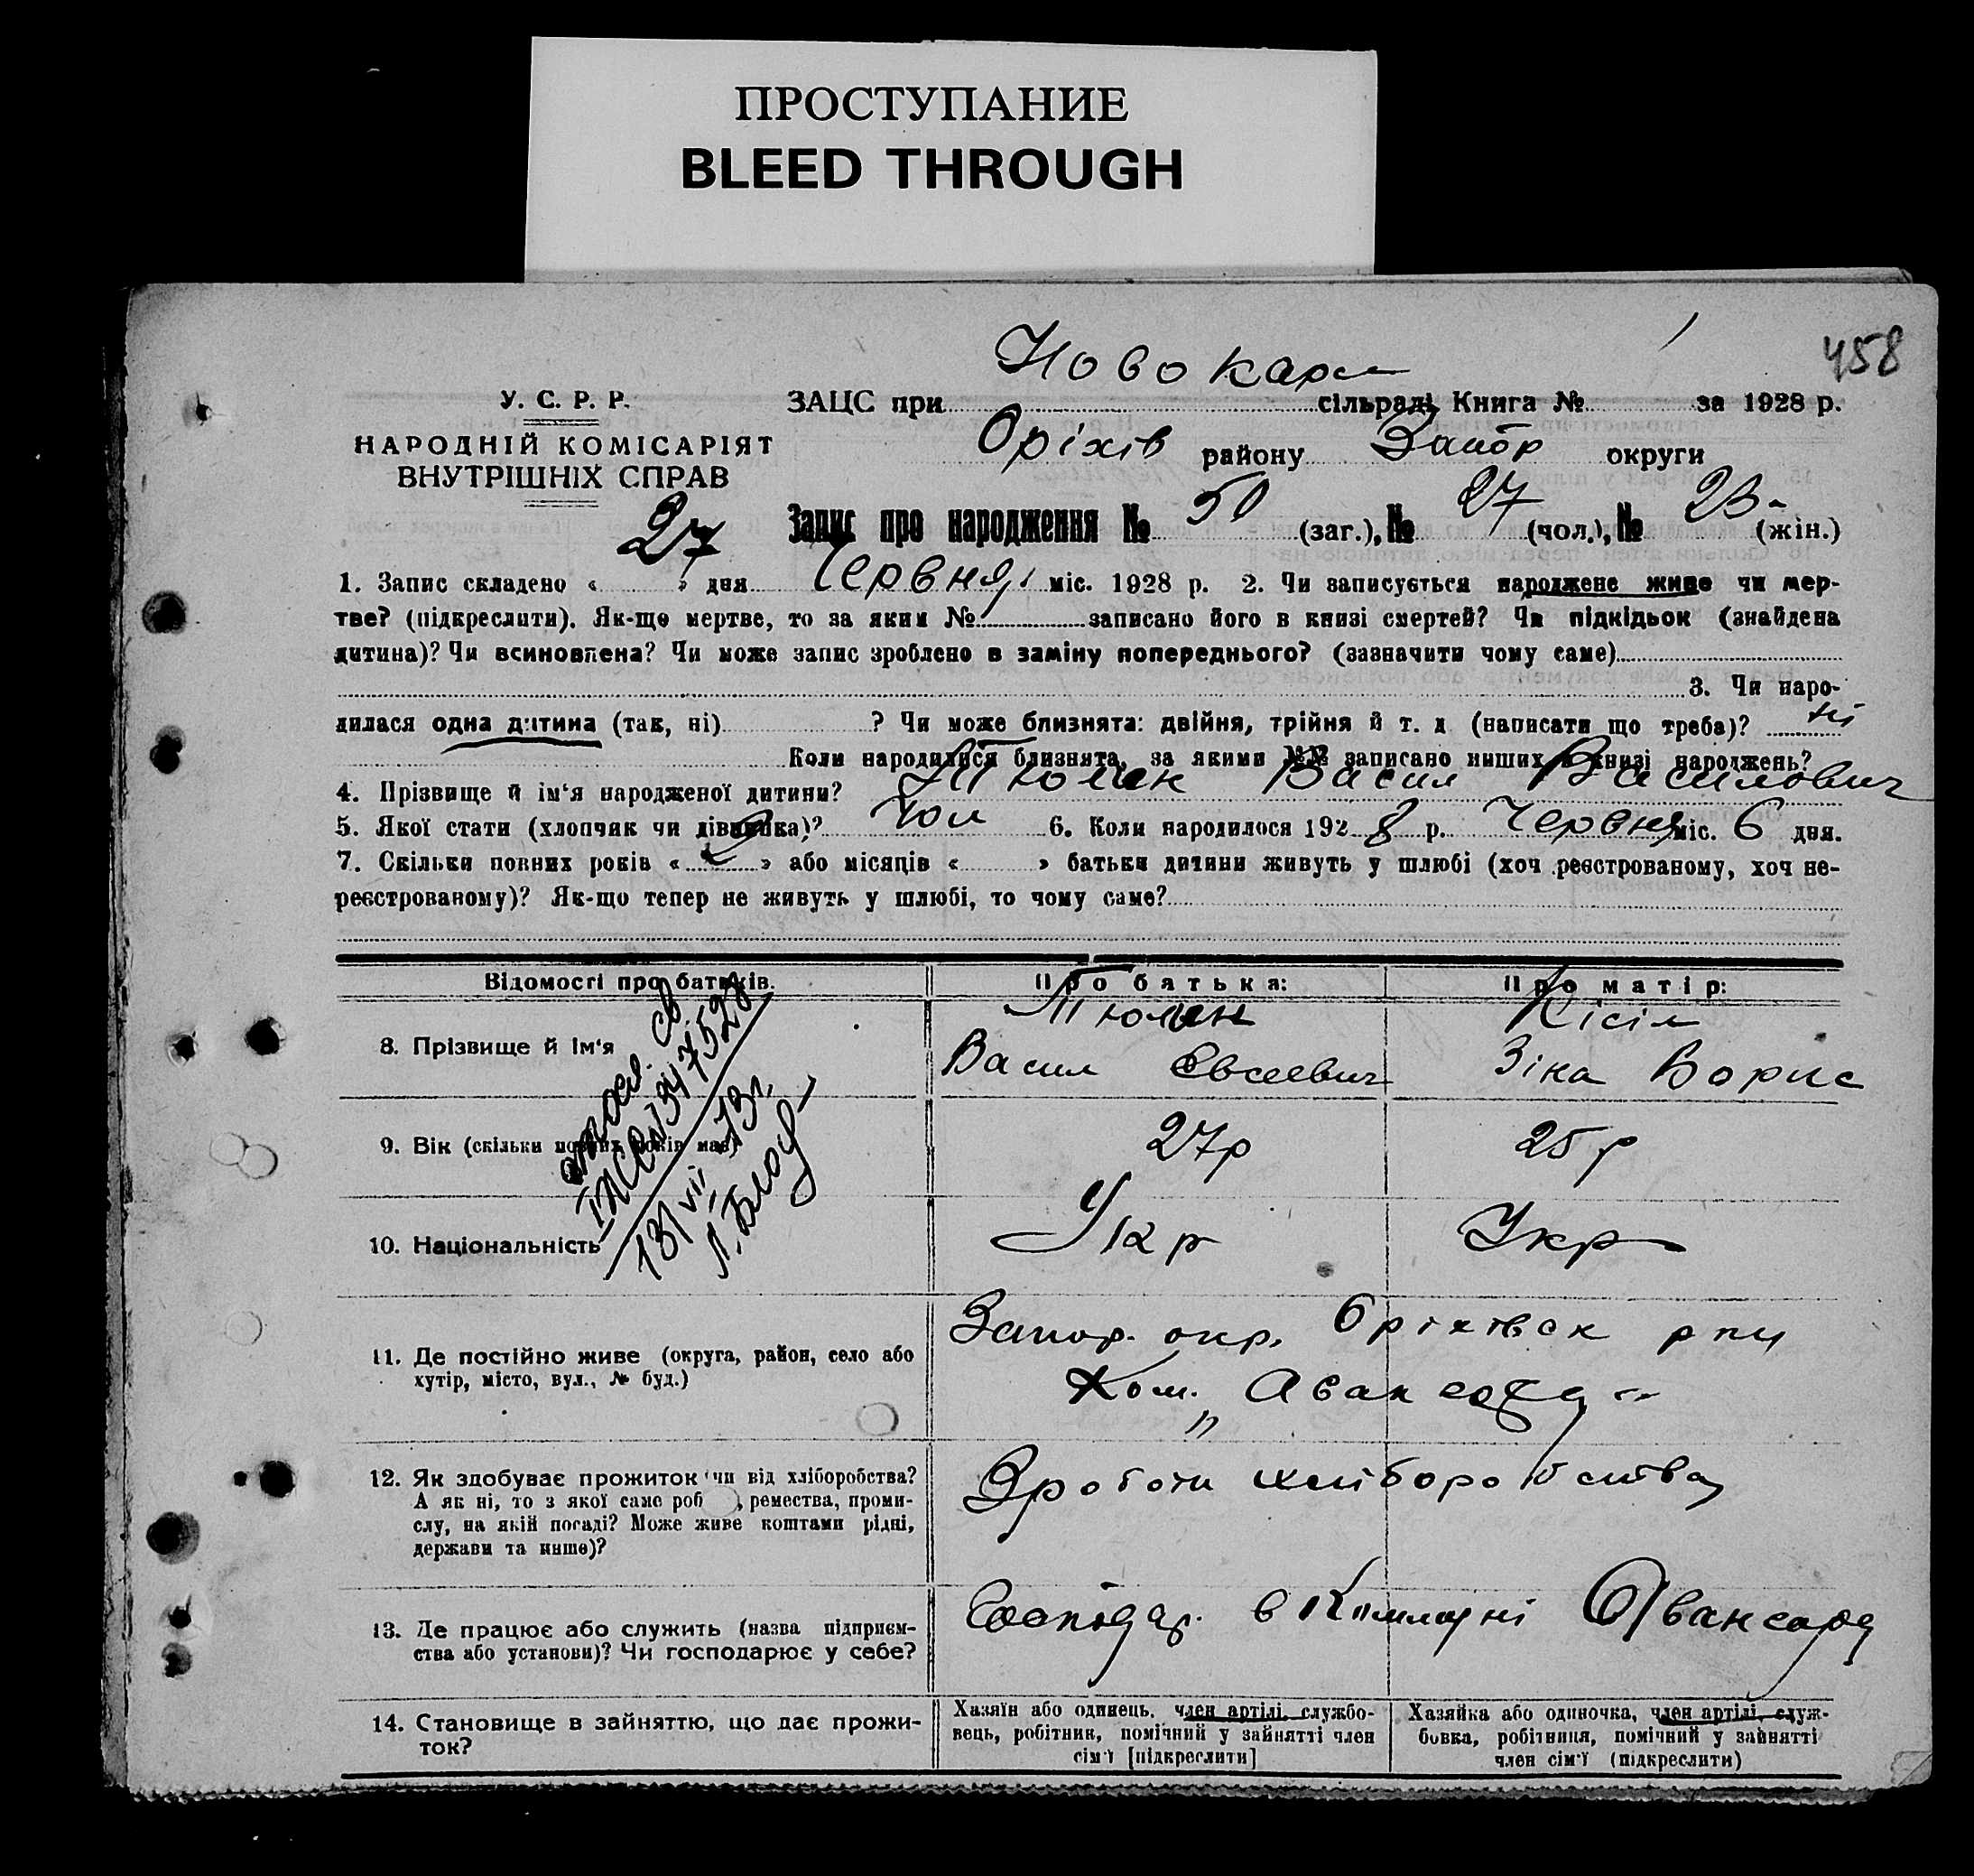 ПРОСТУПАНИЕ
BLEED THROUGH
458
Новокарл
У. С. Р. Р.
ЗАЦС при сільраді Книга № за 1928 р.
НАРОДНІЙ КОМІСАРІЯТ
ВНУТРІШНІХ СПРАВ
Оріхів району Запор округи
Запис про народження № 50 (заг.), № 27 (чол.), № 23 (жін.)
27
1. Запис складено « » дня Червня міс. 1928 р. 2. Чи записується народжене живе чи мер-
тве? (підкреслити). Як-що мертве, то за яким № записано його в книзі смертей? Чи підкідьок (знайдена
дитина)? Чи всиновлена? Чи може запис зроблено в заміну попереднього? (зазначити чому саме)
3. Чи наро-
дилася одна дитина (так, ні) ? Чи може близнята: двійня, трійня й т. д (написати що треба)? ні
Коли народилися близнята, за якими №№ записано инших в книзі народжень?
4. Прізвище й ім‘я народженої дитини? Васил Василович
5. Якої стати (хлопчяк чи дівчинка)? Чол 6. Коли народилося 1928 р. Червня міс. 6 дня.
7. Скільки повних років « 2 » або місяців « » батьки дитини живуть у шлюбі (хоч реєстрованому, хоч не-
реєстрованому)? Як-що тепер не живуть у шлюбі, то чому саме?
Відомості про батьків.
Про батька:
Про матір:
8. Прізвище й ім‘я
Кісіль
Васил Євсеевич
Зіка Борис
9. Вік (скільки повних років має)
27р
25 р
10. Національність
Укр
Укр
13/VII 73г.
11. Де постійно живе (округа, район, село або
хутір, місто, вул., № буд.)
Запор. окр. Оріхівск
Ком. „Авангард“
12. Як здобуває прожиток чи від хліборобства?
А як ні, то з якої саме роб , ремества, проми-
слу, на якій посаді? Може живе коштами рідні,
держави та инше)?
Зроботи хліборобства
13. Де працює або служить (назва підприєм-
ства або установи)? Чи господарює у себе?
Господар. в Коммуні Авангард
14. Становище в зайняттю, що дає прожи-
ток?
Хазяїн або одинець, член артілі, службо-
вець, робітник, помічний у зайнятті член
сім‘ї [підкреслити]
Хазяйка або одиночка, член артілі, служ-
бовка, робітниця, помічний у зайнятті
член сім‘ї (підкреслити)